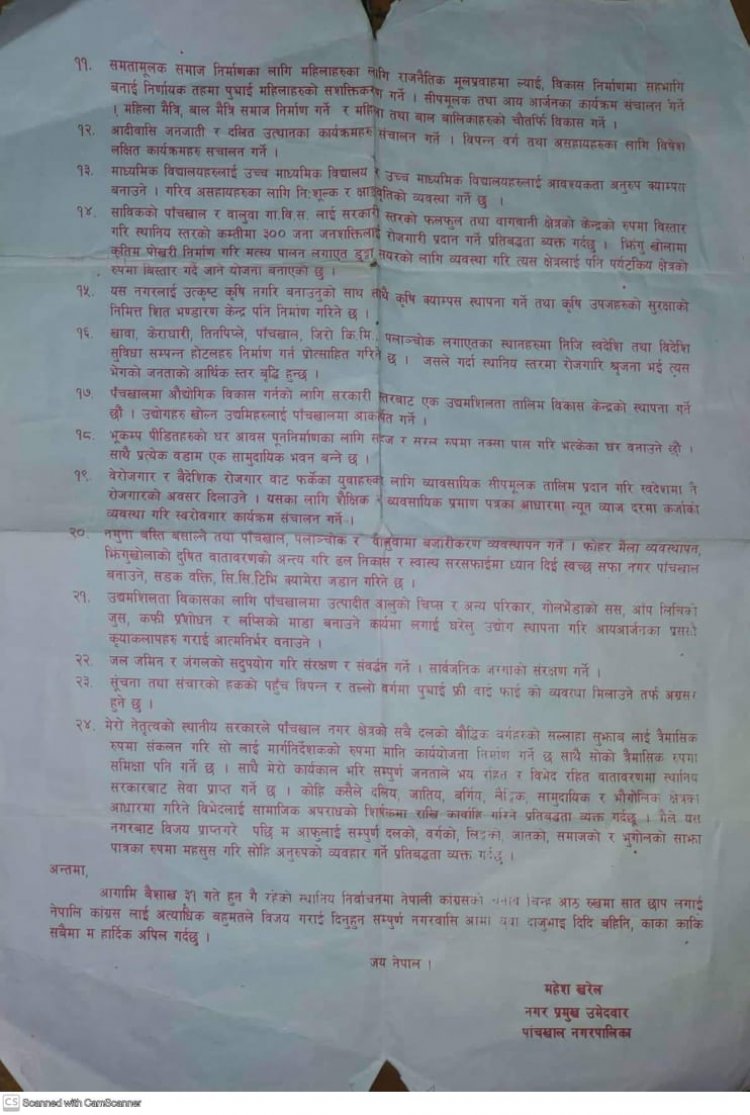 ११. समतामूलक समाज निर्माणका लागि महिलाहरुका लागि राजनैतिक मूलप्रवाहमा ल्याई, विकास निर्माणमा सहभागि
बनाई निर्णायक तहमा पुघाई महिलाहरुको सशक्तिकरण गर्ने । सीपमूलक तथा आय आर्जनका कार्यक्रम संचालन गर्ने
। महिला मैत्रि, बाल मैत्रि समाज निर्माण गर्ने र महिला तथा बाल बालिकाहरुको चौतर्फि विकास गर्ने ।
१२. आदीवासि जनजाती र दलित उत्थानका कार्यक्रमहरु संचालन गर्ने । विपन्न वर्ग तथा असहायहरुका लागि विषेश
लक्षित कार्यक्रमहरु सचालन गर्ने ।
१३. माध्यमिक विद्यालयहरुलाई उच्च माध्यमिक विद्यालय र उच्च माध्यमिक विद्यालयहरुलाई आवश्यकता अनुरुप क्याम्पस
बनाउने । गरिव असहायहरुका लागि नि:शूल्क र क्षात्रवृतिको व्यवस्था गर्ने छु ।
१४. साविकको पाँचखाल र वालुवा गा.वि.स. लाई सरकारी स्तरको फलफुल तथा वागवानी क्षेत्रको केन्द्रको रुपमा विस्तार
गरि स्थानिय स्तरको कम्तीमा ३०० जना जनशक्तिलाई रोजगारी प्रदान गर्ने प्रतिबद्धता व्यक्त गर्दछु । झिगु खोलामा
कृतिम पोखरी निर्माण गरि मत्स्य पालन लगाएत डुङ्गा सयरको लागि व्यवस्था गरि त्यस क्षेत्रलाई पनि पर्यटकिय क्षेत्रको
रुपमा बिस्तार गर्दै जाने योजना बनाएकी छु ।
१५. यस नगरलाई उत्कृष्ट कृषि नगरि बनाउनुको साथ साथै कृषि क्याम्पस स्थापना गर्ने तथा कृषि उपजहरुको सुरक्षाको
निमित्त शित भण्डारण केन्द्र पनि निर्माण गरिने छ ।
१६. खावा, केराघारी, तिनपिप्ले, पाँचखाल, जिरो कि.मि., पलाञ्चोक लगाएतका स्थानहरुमा निजि स्वदेशि तथा विदेशि
सुविधा सम्पन्न होटलहरु निर्माण गर्न प्रोत्साहित गरिने छ । जसले गर्दा स्थानिय स्तरमा रोजगारि श्रृजना भई त्यस
भेगको जनताको आर्थिक स्तर बृद्धि हुन्छ ।
१७. पँचखालमा औधोगिक विकास गर्नको लागि सरकारी स्तरबाट एक उद्यमशिलता तालिम विकास केन्द्रको स्थापना गर्ने
छौ । उद्योगहरु खोल्न उद्यमिहरुलाई पाँचखालमा आकर्षित गर्ने ।
१८. भूकम्प पीडितहरुको घर आवस पूननिर्माणका लागि सहज र सरल रुपमा नक्सा पास गरि भत्केका घर वनाउने छौ ।
साथै प्रत्येक वडाम एक सामुदायिक भवन बन्ने छ ।
१९. वेरोजगार र बैदेशिक रोजगार वाट फर्केका युवाहरुको लागि व्यावसायिक सीपमूलक तालिम प्रदान गरि स्वदेशमा नै
रोजगारको अवसर दिलाउने । यसका लागि शैक्षिक र व्यवसायिक प्रमाण पत्रका आधारमा न्यून व्याज दरमा कर्जाको
व्यवस्था गरि स्वरोवगार कार्यक्रम संचालन गर्ने ।
२०. नमुना बस्ति बसाल्ने तथा पाँचखाल, पलाञ्चोक र वालुवामा बजारीकरण व्यवस्थापन गर्ने । फोहर मैला व्यवस्थापन,
झिगुखोलाको दुषित वातावरणको अन्त्य गरि ढल निकास र स्वास्थ सरसफाईमा ध्यान दिई स्वच्छ सफा नगर पांचखाल
बनाउने, सडक वक्ति, सि.सि.टिभि क्यामेरा जडान गरिने छ ।
२१. उद्यमशिलता विकासका लागि पाँचखालमा उत्पादीत आलुको चिप्स र अन्य परिकार, गोलभेडाको सस, आंप लिचिको
जुस, कफी प्रशोधन र लप्सिको माडा बनाउने कार्यमा लगाई घरेलु उद्योग स्थापना गरि आयआर्जनका प्रसस्त
कृयाकलापहरु गराई आत्मनिर्भर वनाउने ।
२२. जल जमिन र जंगलको सदुपयोग गरि संरक्षण र संवर्द्धन गर्ने । सार्वजनिक जग्गाको संरक्षण गर्ने ।
२३. सूंचना तथा संचारको हकको पहुँच विपन्न र तल्लो वर्गमा पुघाई फ्री वाई फाई को व्यवस्था मिलाउने तर्फ अग्रसर
हुने छु ।
२४. मेरो नेतृत्वको स्थानीय सरकारले पाँचखाल नगर क्षेत्रको सबै दलको बौद्धिक वर्गहरुको सल्लाहा सुझाब लाई त्रैमासिक
रुपमा संकलन गरि सो लाई मार्गनिर्देशकको रुपमा मानि कार्ययोजना निर्माण गर्ने छ साथै सोको त्रैमासिक रुपमा
समिक्षा पनि गर्ने छ । साथै मेरो कार्यकाल भरि सम्पुर्ण जनताले भय रहित र विभेद रहित वातावरणमा स्थानिय
सरकारबाट सेवा प्राप्त गर्ने छ । कोहि कसैले दलिय, जातिय, बर्गिय, लैङ्गिक, सामुदायिक र भौगोलिक क्षेत्रका
आधारमा गरिने विभेदलाई सामाजिक अपराधको शिर्षकमा राखि कार्वाहि गरिने प्रतिबद्धता व्यक्त गर्दछु । मैले यस
नगरबाट विजय प्राप्तगरे पछि म आफुलाई सम्पुर्ण दलको, वर्गको, लिङ्गको, जातको, समाजको र भुगोलको साझा
पात्रका रुपमा महसुस गरि सोहि अनुरुपको व्यवहार गर्ने प्रतिबद्धता व्यक्त गर्दछु ।
अन्तमा,
आगामि बैशाख ३१ गते हुन गै रहेको स्थानिय निर्वाचनमा नेपाली कांग्रसको चुनाब चिन्ह आठ रुखमा सात छाप लगाई
नेपालि कांग्रस लाई अत्याधिक बहुमतले विजय गराई दिनुहुन सम्पुर्ण नगरवासि आमा बुवा दाजुभाइ दिदि बहिनि, काका काकि
सबैमा म हार्दिक अपिल गर्दछु ।
जय नेपाल ।
महेश खरेल
नगर प्रमुख उमेदवार
पांचखाल नगरपालिका
CS Scanned with CamScanner